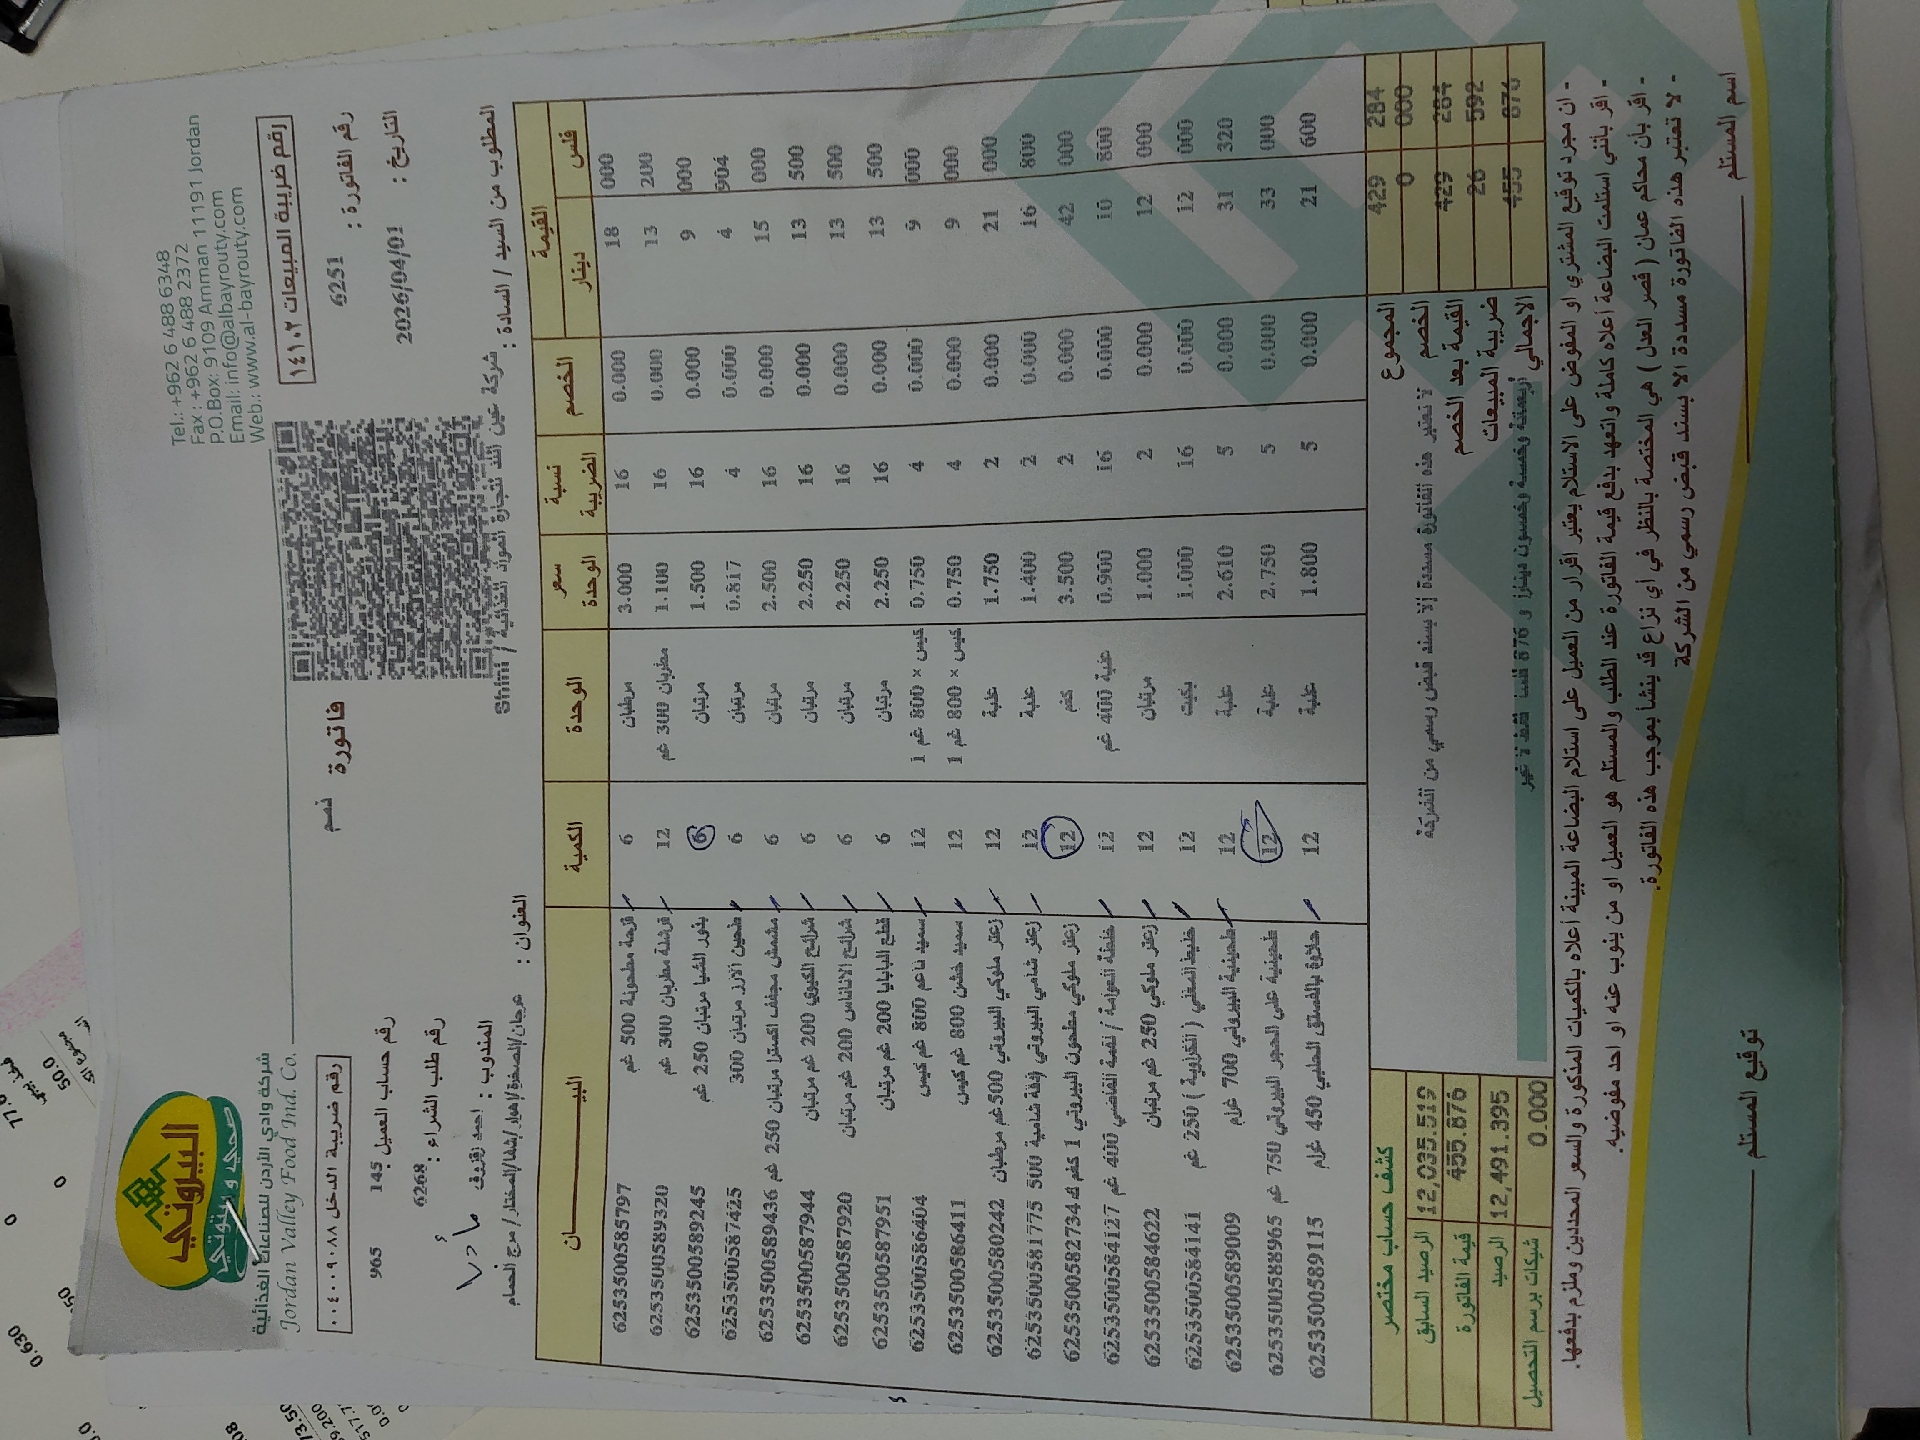 البيروتي
صحي و بيتوتي
شركة وادي الأردن للصناعات الغذائية
Jordan Valley Food Ind. Co.
Tel.: +962 6 488 6348
Fax : +962 6 488 2372
P.O.Box: 9109 Amman 11191 Jordan
Email: info@albayrouty.com
Web.: www.al-bayrouty.com
رقم ضريبة الدخل ٠٠٤٠٠٩٠٨٨
فاتورة ذمم
رقم ضريبة المبيعات ١٤١٠٢
رقم الفاتورة : 6251
التاريخ : 2026/04/01
رقم حساب العميل : 145 965
رقم طلب الشراء : 6268
المندوب : احمد زقزوق
المطلوب من السيد / السادة : شركة عين اللذ لتجارة المواد الغذائية / Shini
العنوان : عرجان/الصخرة/اهواز/شفا/المختار/ مرج الحمام
البيـــان الكمية الوحدة سعر الوحدة نسبة الضريبة الخصم القيمة
دينار فلس
6253500585797 قرحة مطحونة 500 غم 6 مرطبان 3.000 16 0.000 18 000
6253500589320 قرشلة مطربان 300 غم 12 مطربان 300 غم 1.100 16 0.000 13 200
6253500589245 بذور الشيا مرتبان 250 غم 6 مرتبان 1.500 16 0.000 9 000
6253500587425 طحين الارز مرتبان 300 6 مرتبان 0.817 4 0.000 4 904
6253500589436 مشمش مجفف اكسترا مرتبان 250 غم 6 مرتبان 2.500 16 0.000 15 000
6253500587944 شرائح الكيوي 200 غم مرتبان 6 مرتبان 2.250 16 0.000 13 500
6253500587920 شرائح الاناناس 200 غم مرتبان 6 مرتبان 2.250 16 0.000 13 500
6253500587951 قطع البابايا 200 غم مرتبان 6 مرتبان 2.250 16 0.000 13 500
6253500586404 سميد ناعم 800 غم كيس 12 كيس × 800 غم 1 0.750 4 0.000 9 000
6253500586411 سميد خشن 800 غم كيس 12 كيس × 800 غم 1 0.750 4 0.000 9 000
6253500580242 زعتر ملوكي البيروتي 500غم مرطبان 12 علبة 1.750 2 0.000 21 000
6253500581775 زعتر شامي البيروتي زقة شامية 500 12 علبة 1.400 2 0.000 16 800
6253500582734 زعتر ملوكي مطحون البيروتي 1 كغم ك 12 كغم 3.500 2 0.000 42 000
6253500584127 خلطة العوامة / لقمة القاضي 400 غم 12 علبة 400 غم 0.900 16 0.000 10 800
6253500584622 زعتر ملوكي 250 غم مرتبان 12 مرتبان 1.000 2 0.000 12 000
6253500584141 خليط المغلي ( الكراوية ) 250 غم 12 بكيت 1.000 16 0.000 12 000
6253500589009 طحينية البيروتي 700 غرام 12 علبة 2.610 5 0.000 31 320
6253500588965 طحينية على الحجر البيروتي 750 غم 12 علبة 2.750 5 0.000 33 000
6253500589115 حلاوة بالفستق الحلبي 450 غرام 12 علبة 1.800 5 0.000 21 600
لا تعتبر هذه الفاتورة مسددة إلا بسند قبض رسمي من الشركة
المجموع 429 284
الخصم 0 000
القيمة بعد الخصم 429 284
ضريبة المبيعات 26 592
الاجمالي 455 876
أربعمائة وخمسة وخمسون دينار و 876 فلسا فقط لا غير
كشف حساب مختصر
الرصيد السابق 12,035.519
قيمة الفاتورة 455.876
الرصيد 12,491.395
شيكات برسم التحصيل 0.000
- ان مجرد توقيع المشتري او المفوض على الاستلام يعتبر اقرار من العميل على استلام البضاعة المبينة أعلاه بالكميات المذكورة والسعر المحددين وملزم بدفعها.
- اقر بأنني استلمت البضاعة أعلاه كاملة واتعهد بدفع قيمة الفاتورة عند الطلب والمستلم هو العميل او من ينوب عنه او احد مفوضيه.
- اقر بأن محاكم عمان ( قصر العدل ) هي المختصة بالنظر في أي نزاع قد ينشأ بموجب هذه الفاتورة.
- لا تعتبر هذه الفاتورة مسددة الا بسند قبض رسمي من الشركة
اسم المستلم
توقيع المستلم